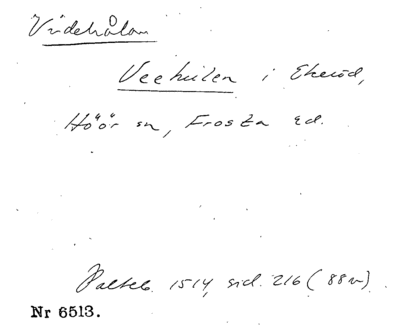 Videhålan
Veehulen i Ekeröd,
Höör sn, Frosta hd.
Palteb. 1514, sid. 216 (88v)
Nr 6513.